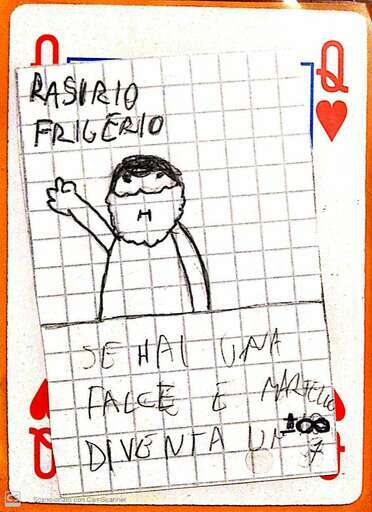 Q
Q
RASIRIO
FRIGERIO
SE HAI UNA
FALCE E MARTELLO
+∞
DIVENTA UN 7
Q
Q
CS Scansionato con CamScanner